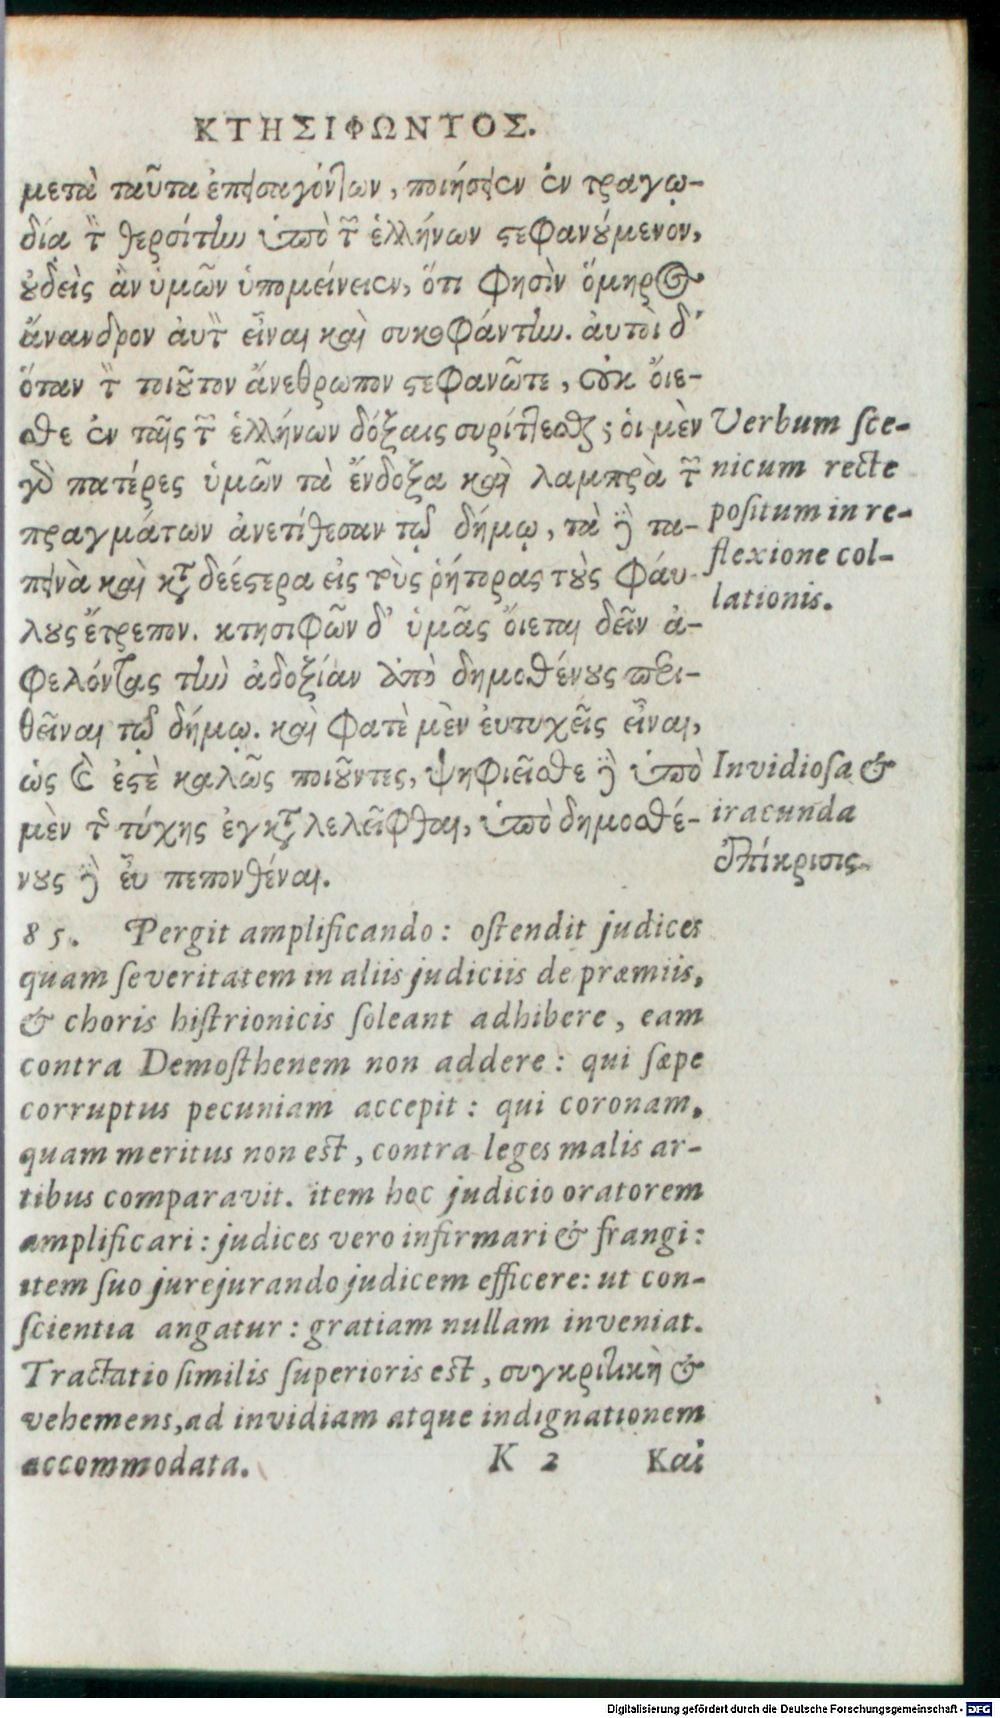 ΚΤΗΣΙΦΩΝΤΟΣ.
μετὰ ταῦτα ἐπεισαγόντων, ποιήσειεν ἐν τραγῳ-
δίᾳ τὸν θερσίτην ὑπὸ τῶν ἑλλήνων στεφανούμενον,
οὐδεὶς ἂν ὑμῶν ὑπομείνειεν, ὅτι φησὶν ὅμηρος
ἄνανδρον αὐτὸν εἶναι καὶ συκοφάντην. αὐτοὶ δ'
ὅταν τὸν τοιοῦτον ἄνθρωπον στεφανῶτε, οὐκ οἴε-
σθε ἐν ταῖς τῶν ἑλλήνων δόξαις συρίττεσθαι; οἱ μὲν
γὰρ πατέρες ὑμῶν τὰ ἔνδοξα καὶ λαμπρὰ τῶν
πραγμάτων ἀνετίθεσαν τῷ δήμῳ, τὰ δὲ τα-
πεινὰ καὶ καταδεέστερα εἰς τοὺς ῥήτορας τοὺς φαύ-
λους ἔτρεπον. κτησιφῶν δ' ὑμᾶς οἴεται δεῖν ἀ-
φελόντας τὴν ἀδοξίαν ἀπὸ δημοσθένους περι-
θεῖναι τῷ δήμῳ. καὶ φατὲ μὲν εὐτυχεῖς εἶναι,
ὡς καὶ ἐστὲ καλῶς ποιοῦντες, ψηφιεῖσθε δὲ ὑπὸ
μὲν τῆς τύχης ἐγκαταλελεῖφθαι, ὑπὸ δημοσθέ-
νους δὲ εὖ πεπονθέναι.
Verbum sce-
nicum recte
positum in re-
flexione col-
lationis.
Invidiosa &
iracunda
ἐπίκρισις.
85. Pergit amplificando: ostendit judices
quam severitatem in aliis judiciis de præmiis,
& choris histrionicis soleant adhibere, eam
contra Demosthenem non addere: qui sæpe
corruptus pecuniam accepit: qui coronam,
quam meritus non est, contra leges malis ar-
tibus comparavit. item hoc judicio oratorem
amplificari: judices vero infirmari & frangi:
item suo jurejurando judicem efficere: ut con-
scientia angatur: gratiam nullam inveniat.
Tractatio similis superioris est, συγκριτικὴ &
vehemens, ad invidiam atque indignationem
accommodata.
K 2 Καὶ
Digitalisierung gefördert durch die Deutsche Forschungsgemeinschaft - DFG